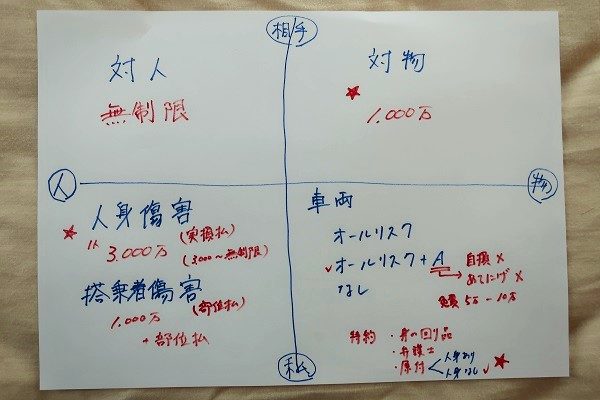 相手
対人
無制限
対物
★ 1.000万
人
物
人身傷害
★ 1人 3.000万 (実損払)
(3000〜無制限)
搭乗者傷害
1.000万 (部位払)
+部位払
車両
オールリスク
✓オールリスク+A → 自損 ×
あてにげ ×
なし
免責 5万-10万
特約 ・身の回り品
・弁護士
・原付 < 人身あり
人身なし ✓ ★
私